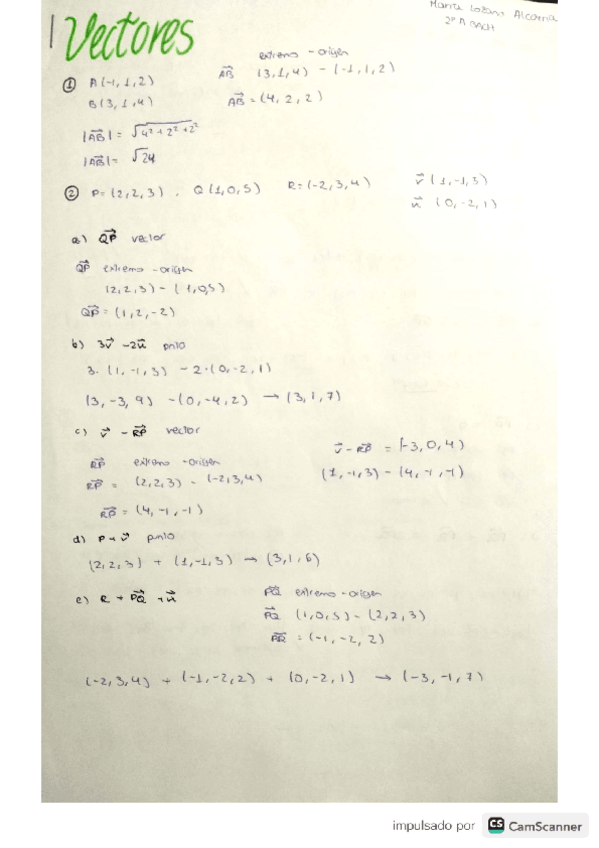 Vectores
2º A BACH
extremo - origen
① A(-1, 1, 2)
B(3, 1, 4)
AB⃗ (3, 1, 4) - (-1, 1, 2)
AB⃗ = (4, 2, 2)
|AB⃗| = √4² + 2² + 2²
|AB⃗| = √24
② P = (2, 2, 3) . Q (1, 0, 5) R = (-2, 3, 4) v⃗ (1, -1, 3)
u⃗ (0, -2, 1)
a) QP⃗ vector
QP⃗ extremo - origen
(2, 2, 3) - (1, 0, 5)
QP⃗ = (1, 2, -2)
b) 3v⃗ - 2u⃗ pnto
3. (1, -1, 3) - 2·(0, -2, 1)
(3, -3, 9) - (0, -4, 2) → (3, 1, 7)
c) v⃗ - RP⃗ vector
RP⃗ extremo - origen
RP⃗ = (2, 2, 3) - (-2, 3, 4)
RP⃗ = (4, -1, -1)
v⃗ - RP⃗ = (-3, 0, 4)
(1, -1, 3) - (4, -1, -1)
d) P + v⃗ pnto
(2, 2, 3) + (1, -1, 3) → (3, 1, 6)
e) R + PQ⃗ + u⃗
PQ⃗ extremo - origen
PQ⃗ (1, 0, 5) - (2, 2, 3)
= (-1, -2, 2)
(-2, 3, 4) + (-1, -2, 2) + (0, -2, 1) → (-3, -1, 7)
impulsado por CS CamScanner